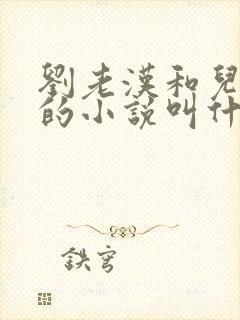 劉老漢和兒
的小説叫什
鉄穹